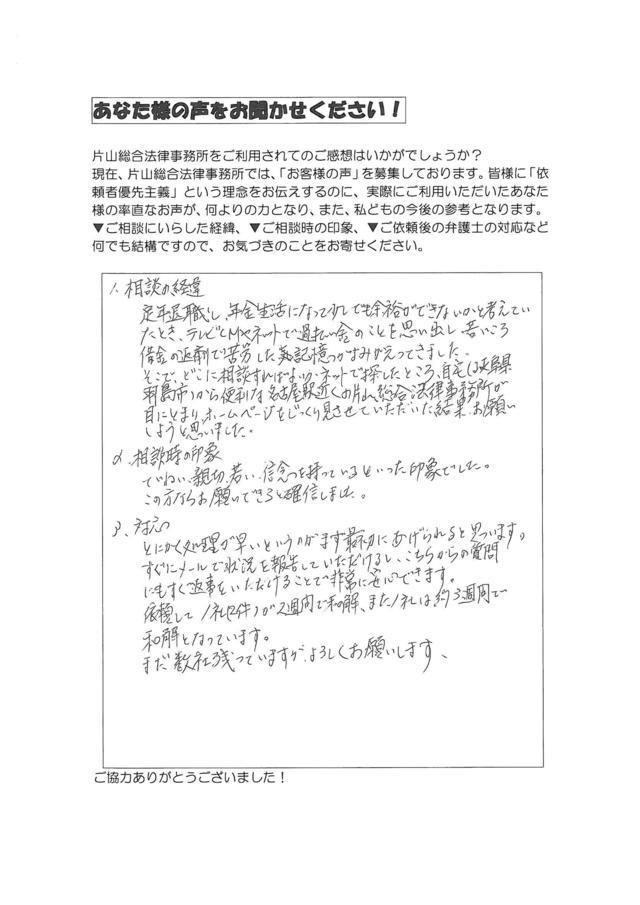 あなた様の声をお聞かせください！
片山総合法律事務所をご利用されてのご感想はいかがでしょうか？
現在、片山総合法律事務所では、「お客様の声」を募集しております。皆様に「依
頼者優先主義」という理念をお伝えするのに、実際にご利用いただいたあなた
様の率直なお声が、何よりの力となり、また、私どもの今後の参考となります。
▼ご相談にいらした経緯、▼ご相談時の印象、▼ご依頼後の弁護士の対応など
何でも結構ですので、お気づきのことをお寄せください。
1、相談の経違
定年退職し、年金生活になって少しでも余裕ができないかと考えてい
たとき、テレビCMやネットで過払い金のことを思い出し、若いころ
借金の返済で苦労した記憶がよみがえってきました。
そこで、どこに相談すればよいか、ネットで探したところ、自宅(岐阜県
羽島市)から便利な名古屋駅近くの片山総合法律事務所が
目にとまり、ホームページをじっくり見させていただいた結果、お願い
しようと思いました。
2、相談時の印象
ていねい、親切、若い、信念を持っているといった印象でした。
この方ならお願いできると確信しました。
3、対応
とにかく処理が早いというのがまず最初にあげられると思います。
すぐにメールで状況を報告していただけるし、こちらからの質問
にもすぐ返事をいただけることで非常に安心できます。
依頼して1社(2件)が2週間で和解、また1社は約3週間で
和解となっています。
まだ数社残っていますが、よろしくお願いします、
ご協力ありがとうございました！